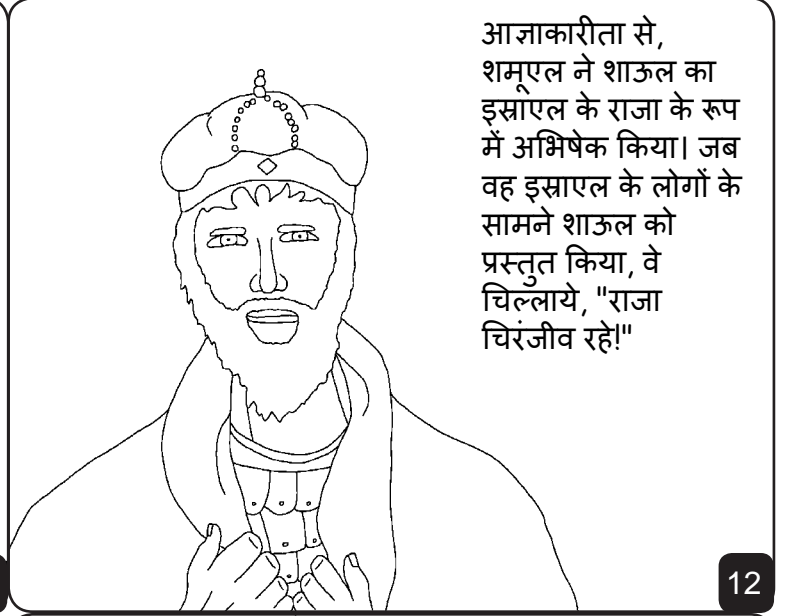 आज्ञाकारीता से,
शमूएल ने शाऊल का
इस्राएल के राजा के रूप
में अभिषेक किया। जब
वह इस्राएल के लोगों के
सामने शाऊल को
प्रस्तुत किया, वे
चिल्लाये, "राजा
चिरंजीव रहे!"
12